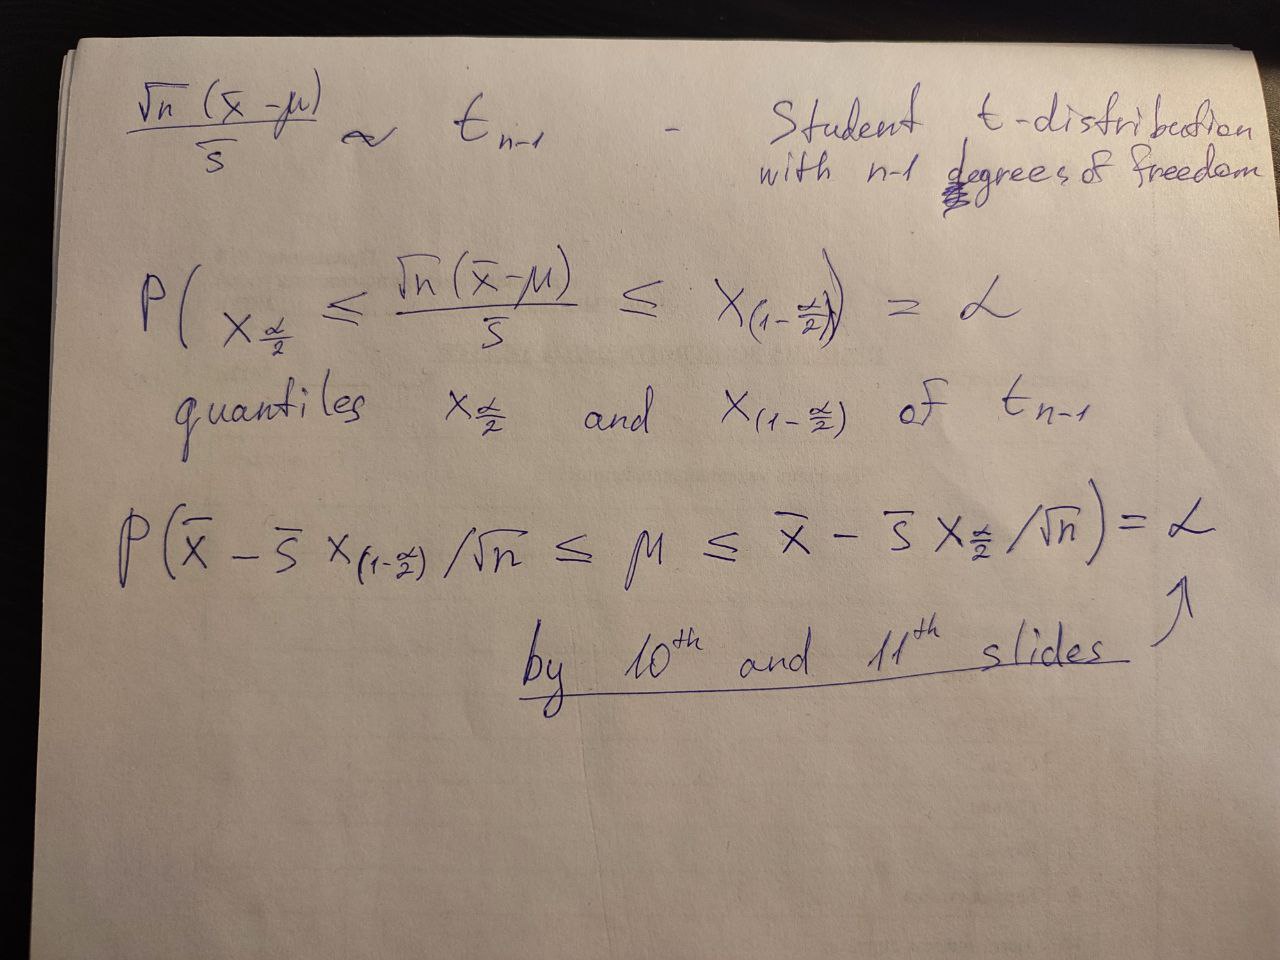 √n (x̄ - μ) / s̄ ~ t_{n-1} - Student t-distribution
with n-1 degrees of freedom
P( x_{α/2} ≤ √n (x̄ - μ) / s̄ ≤ x_{(1-α/2)} ) = α
quantiles x_{α/2} and x_{(1-α/2)} of t_{n-1}
P( x̄ - s̄ x_{(1-α/2)} /√n ≤ μ ≤ x̄ - s̄ x_{α/2} /√n ) = α
by 10th and 11th slides